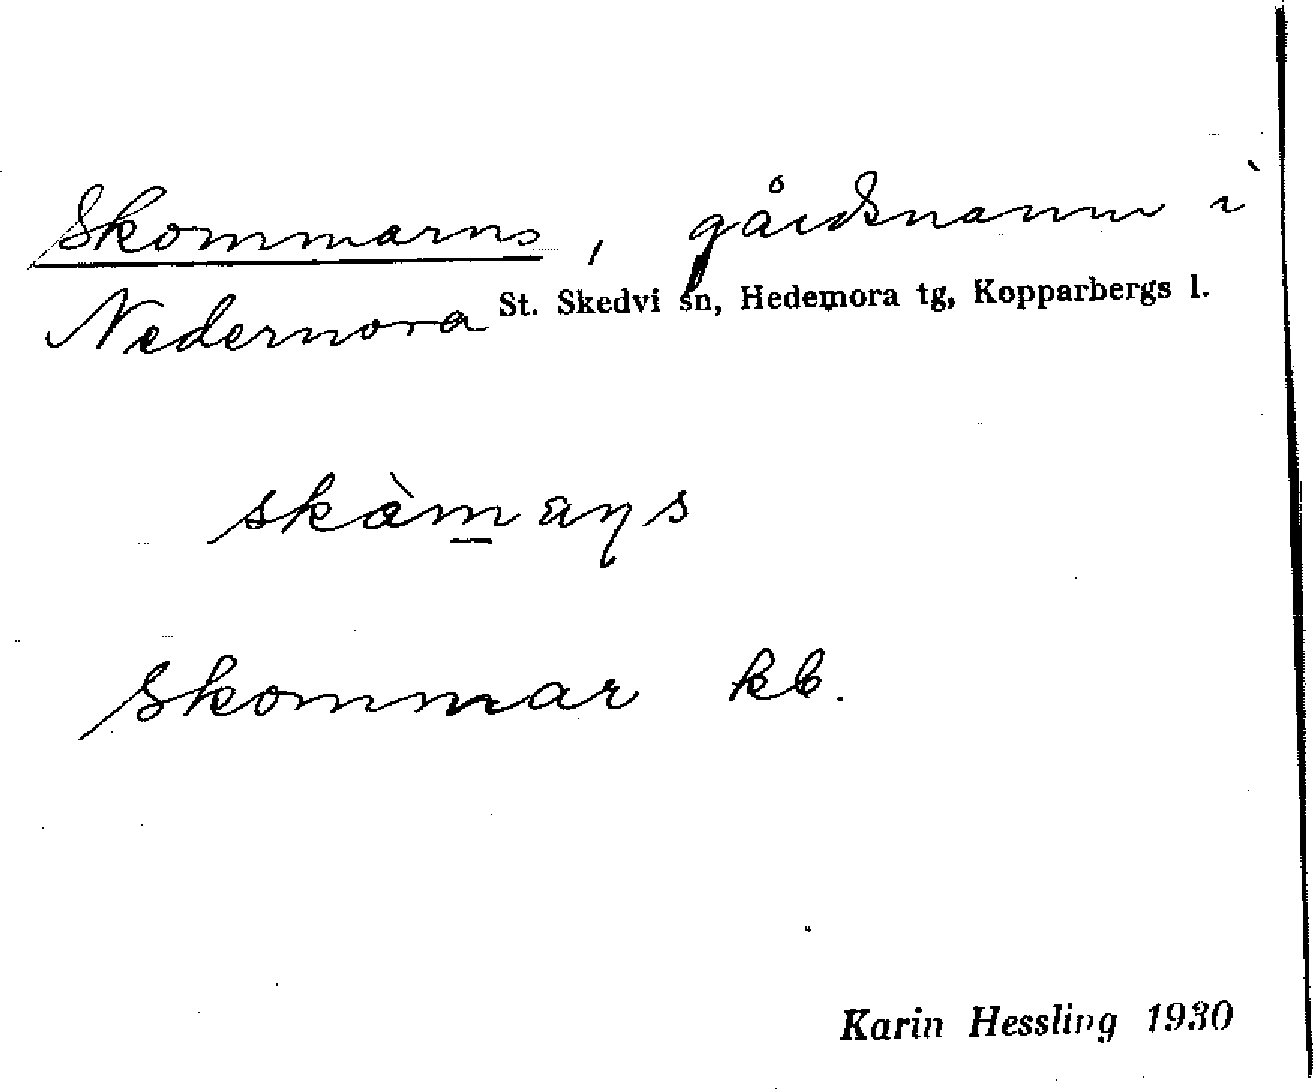 Skommarns, gårdsnamn i
Nedernora St. Skedvi sn, Hedemora tg, Kopparbergs l.
Skommar kb.
Karin Hessling 1930